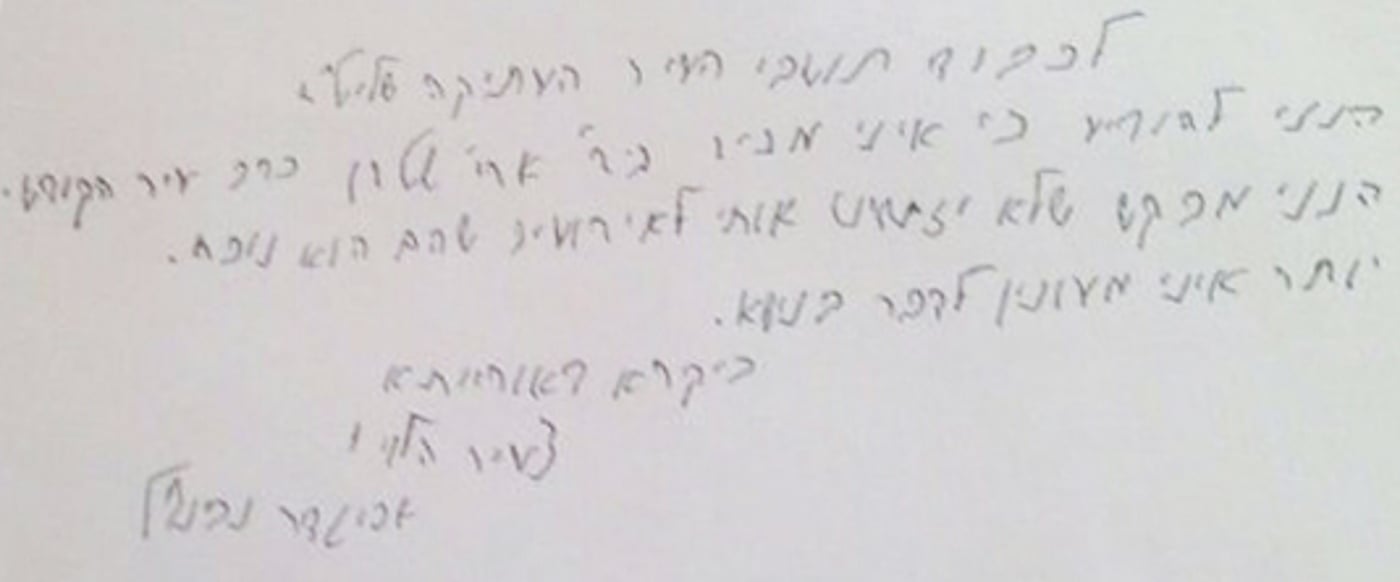 לכבוד תושבי העיר העתיקה שליט"א
הנני להודיע כי איני מכיר בר' ארי' שטרן כרב עיר הקודש.
הנני מבקש שלא יזמינו אותי לאירועים שהם הוא נוכח.
יותר איני מעונין לדבר בנושא.
ביקרא דאורייתא
צעיר הלוים
אביגדר נבנצל